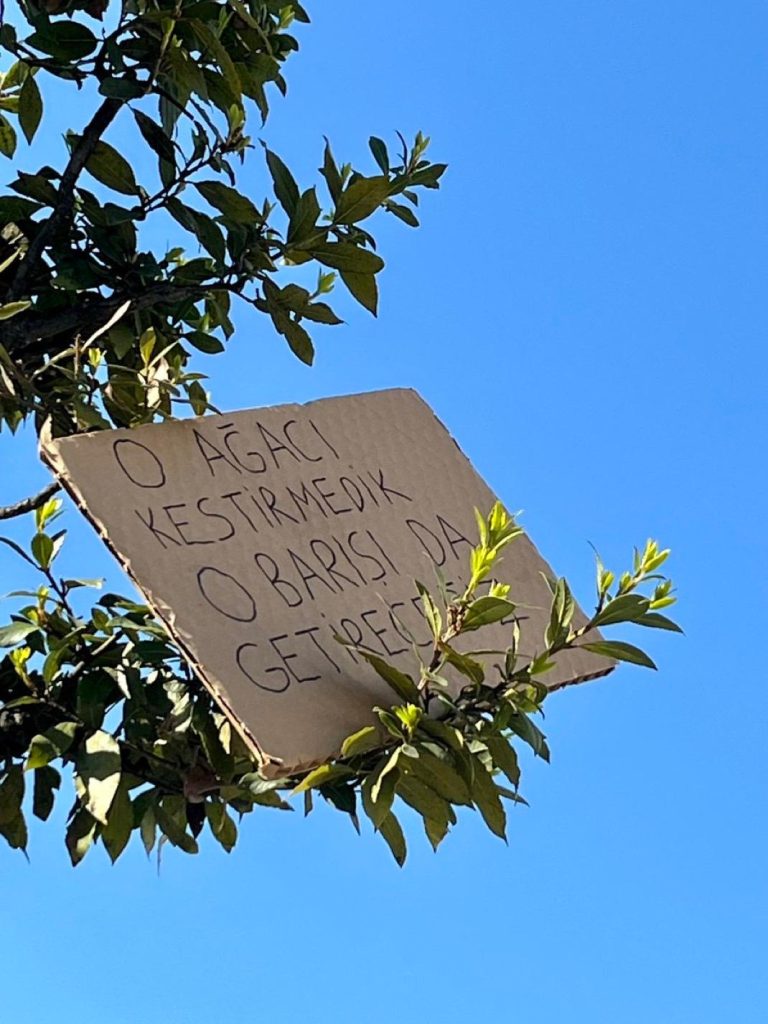 O AĞACI
KESTİRMEDİK
O BARIŞI DA
GETİRECEĞİZ